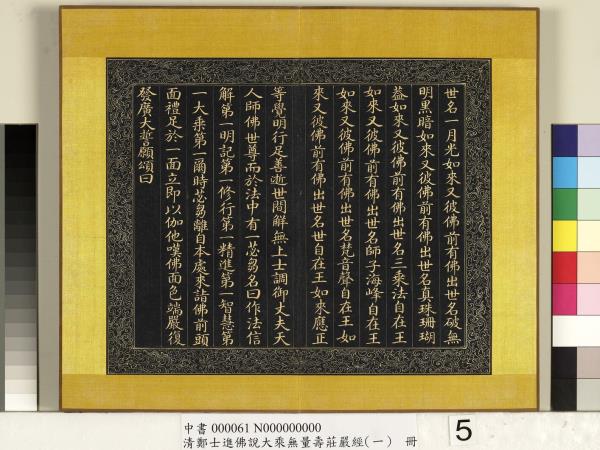 世名一月光如來又彼佛前有佛出世名破無
明黑暗如來又彼佛前有佛出世名真珠珊瑚
葢如來又彼佛前有佛出世名三乘法自在王
如來又彼佛前有佛出世名師子海峰自在王
如來又彼佛前有佛出世名梵音聲自在王如
來又彼佛前有佛出世名世自在王如來應正
等覺明行足善逝世間解無上士調御丈夫天
人師佛世尊而於法中有一苾芻名曰作法信
解第一明記第一修行第一精進第一智慧第
一大乘第一爾時苾芻離自本處來詣佛前頭
面禮足於一面立即以伽他嘆佛面色端嚴復
發廣大誓願頌曰
中書 000061 N000000000
清鄭士進佛說大乘無量壽莊嚴經(一) 冊
5